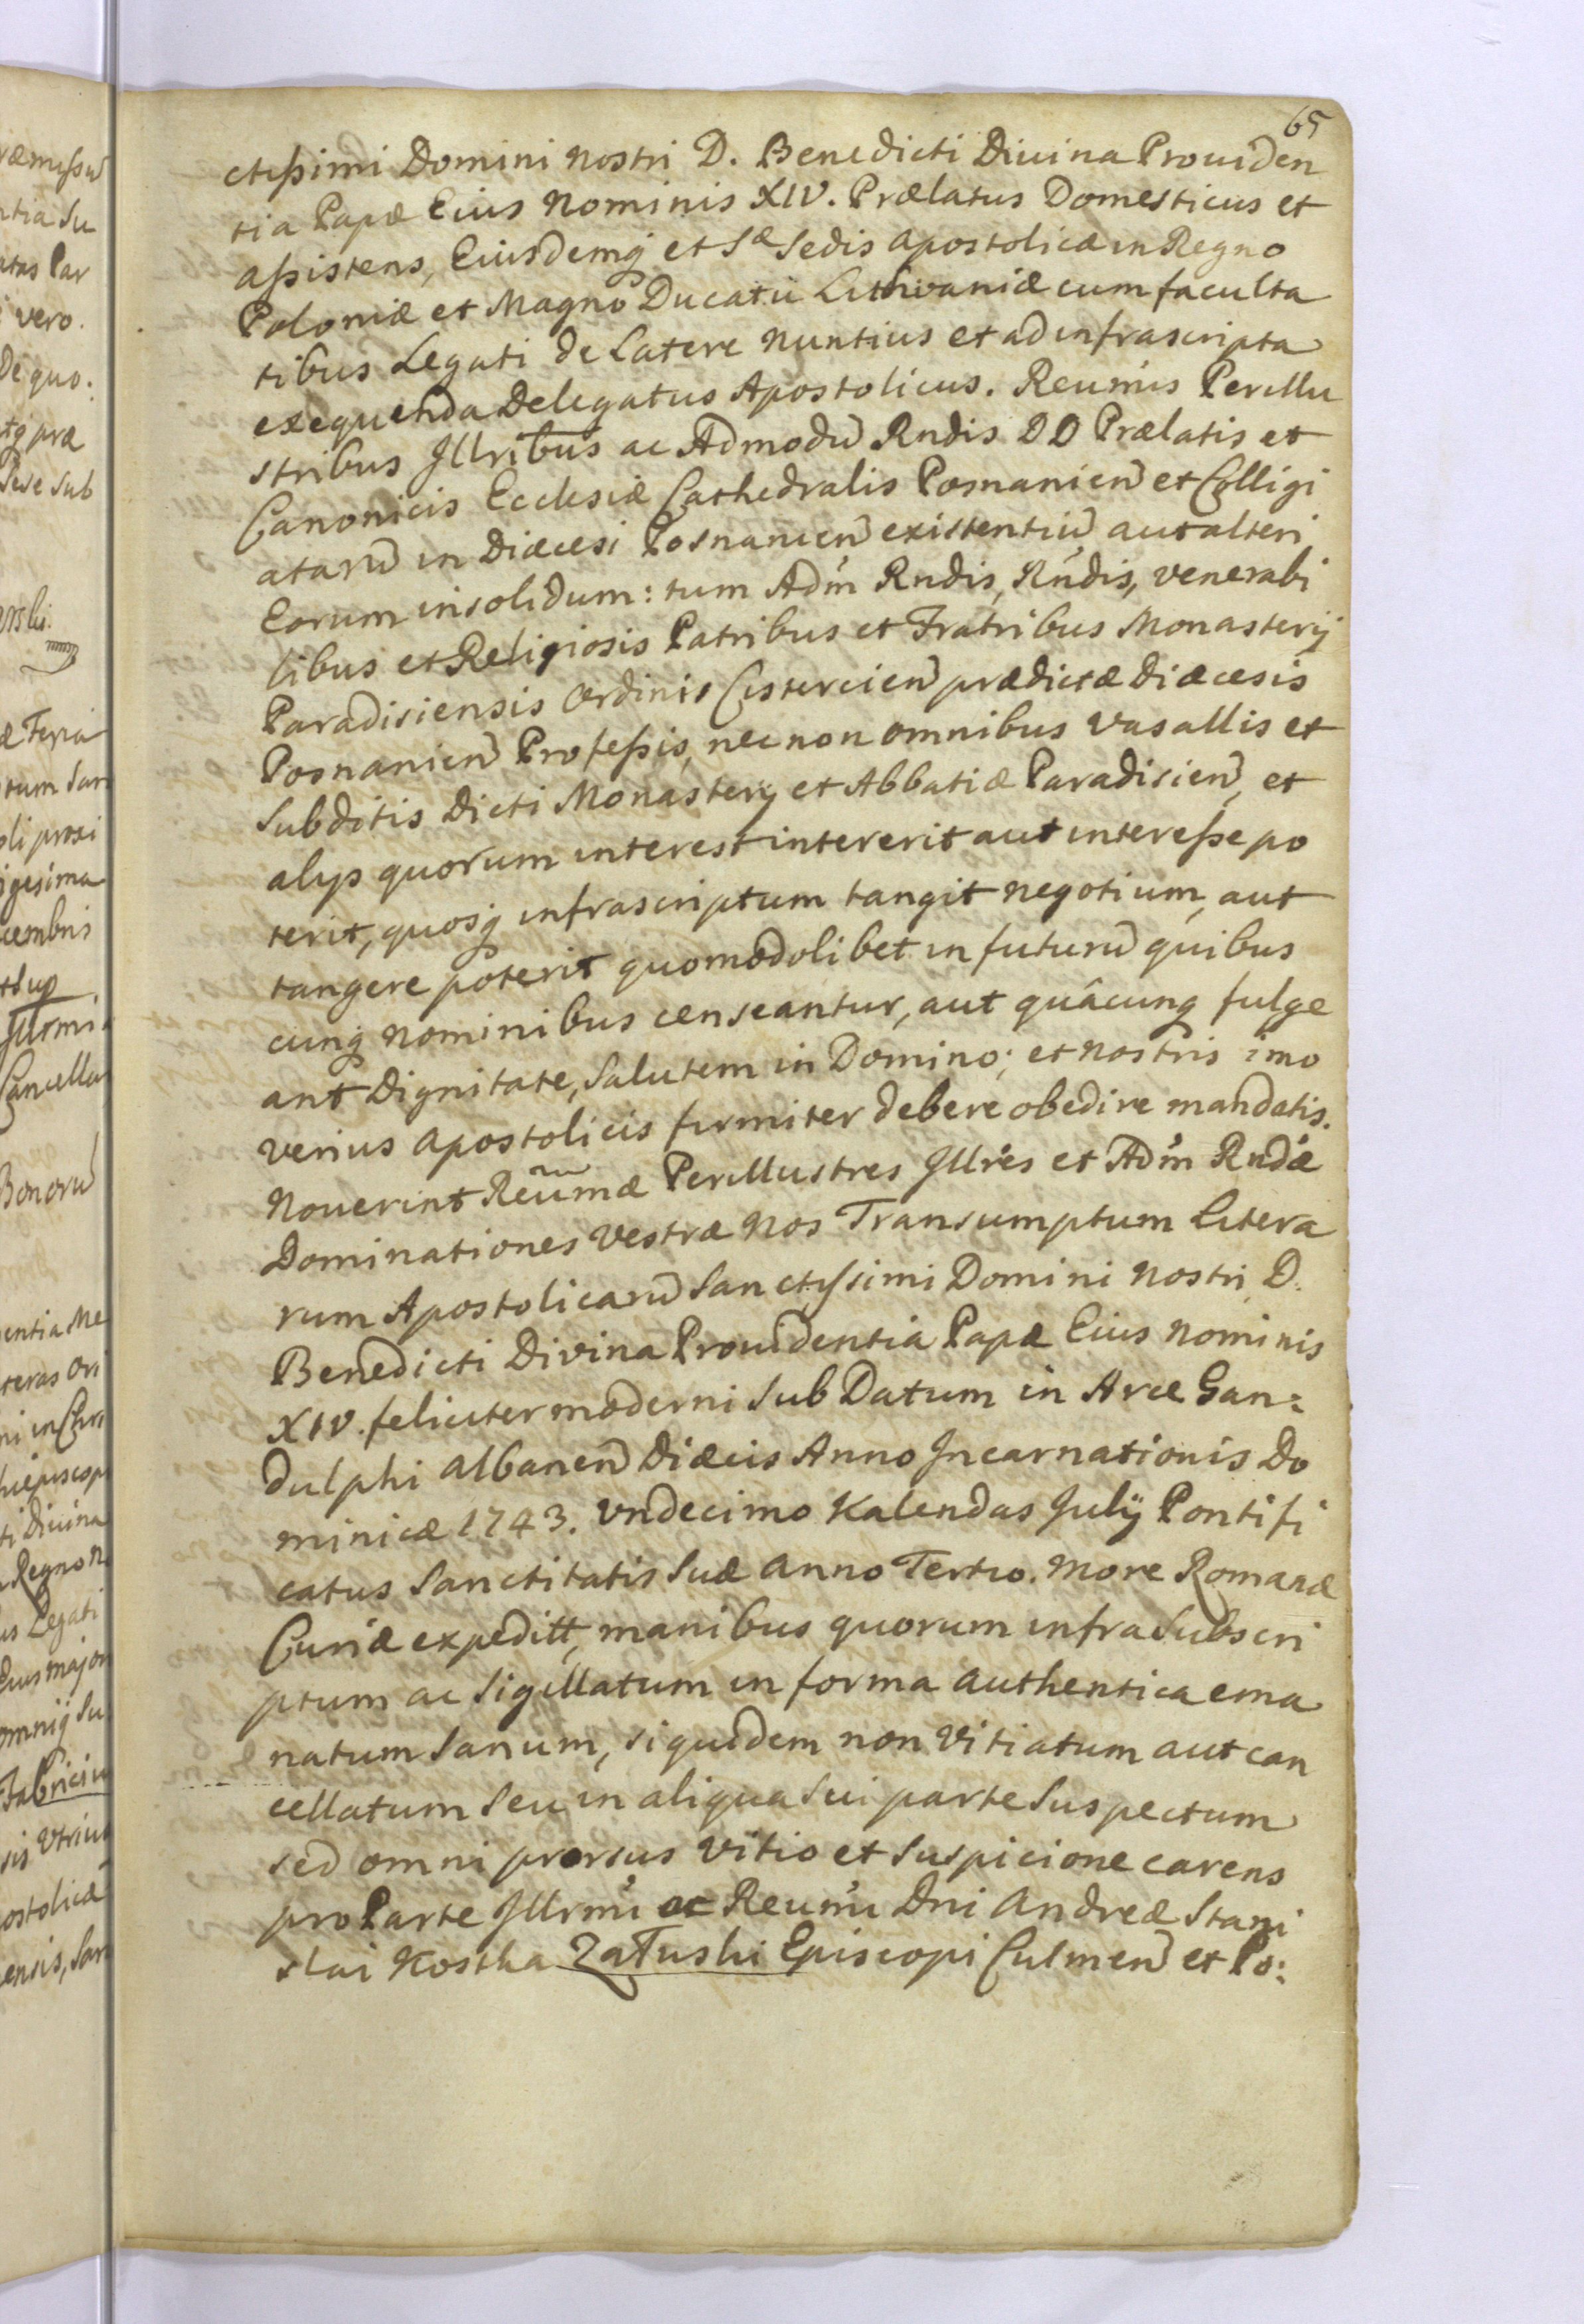 65
ctissimi Domini Nostri D. Benedicti Diuina Prouiden
tia Papæ Eius Nominis XIV. Prælatus Domesticus et
assistens, Eiusdemq et Sæ Sedis Apostolicæ in Regno
Poloniæ et Magno Ducatu Lithvaniæ cum faculta
tibus Legati de Latere Nuntius et ad infrascripta
exequenda Delegatus Apostolicus. Reumis Perillu
stribus Jllribus ac Admodū Rndis DD Prælatis et
Canonicis Ecclesiæ Cathedralis Posnanien et Colligi
atarū in Diæcesi Posnanien existentiū aut alteri
Eorum insolidum: tum Adm Rndis, Rndis, venerabi
libus et Religiosis Patribus et Fratribus Monasterij
Paradisiensis Ordinis Cistercien prædictæ Diæcesis
Posnanien Professis, nec non omnibus Vasallis et
Subditis Dicti Monasterij et Abbatiæ Paradisien, et
alijs quorum interest intererit aut interesse po
terit, quosq infrascriptum tangit negotium, aut
tangere poterit quomodolibet in futurū quibus
cunq nominibus censeantur, aut quâcunq fulge
ant Dignitate, Salutem in Domino; et Nostris imo
verius Apostolicis firmiter debere obedire mandatis.
Nouerint Reūmæ Perillustres Jllres et Adm Rndæ
Dominationes Vestræ Nos Transumptum Litera
rum Apostolicarū Sanctissimi Domini Nostri D.
Benedicti Divina Prouidentia Papæ Eius Nominis
XIV. feliciter moderni Sub Datum in Arce Gan=
dulphi Albanen Diæcis Anno Jncarnationis Do
minicæ 1743. Vndecimo Kalendas Julij Pontifi
catus Sanctitatis Suæ Anno Tertio. More Romanæ
Curiæ expeditt, manibus quorum infra Subscri
ptum ac Sigillatum in forma authentica ema
natum Sanum, siquidem non Vitiatum aut can
cellatum Seu in aliqua Sui parte Suspectum
sed omni prorsus Vitio et Suspicione carens
pro Parte Jllrmi ac Reumi Dni Andreæ Stani
slai Kostka Załuski Episcopi Culmen et Po: